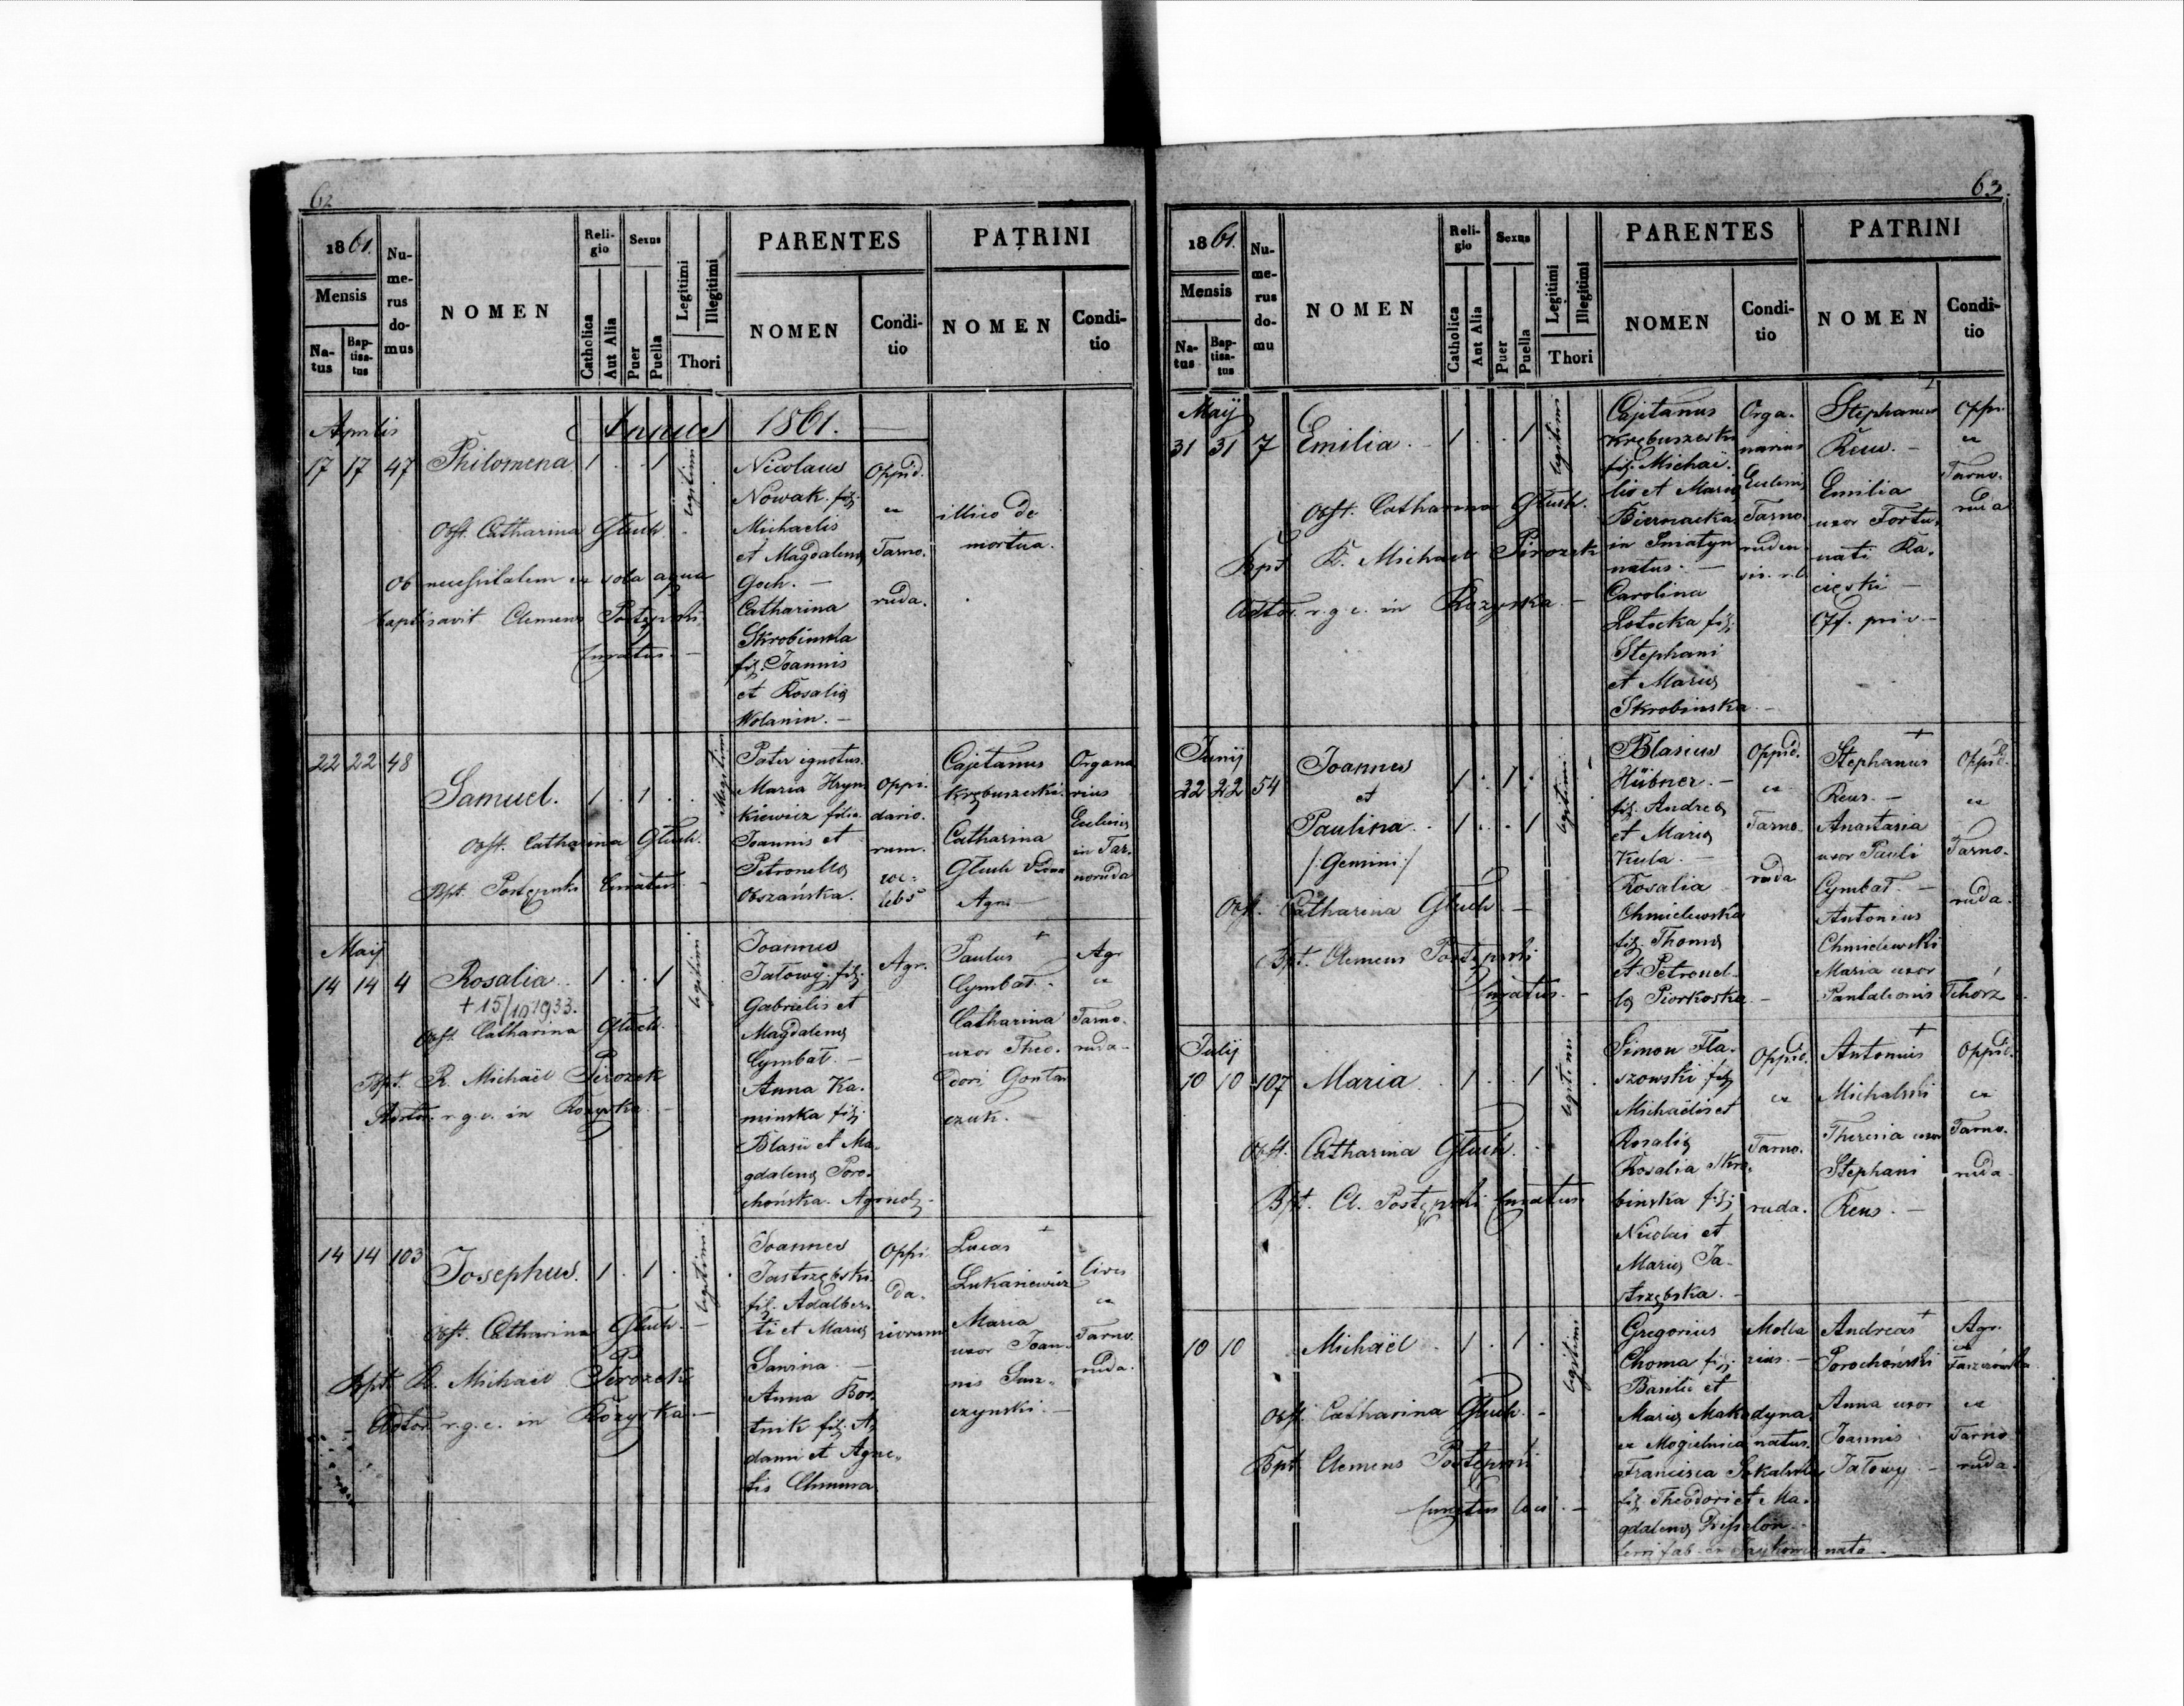 62
1861.
Mensis
Na-
tus
Bap-
tisa-
tus
Nu-
me-
rus
do-
mus
NOMEN
Reli-
gio
Catholica
Aut Alia
Sexus
Puer
Puella
Legitimi
Illegitimi
Thori
PARENTES
NOMEN
Condi-
tio
PATRINI
NOMEN
Condi-
tio
Annus 1861.
Aprilis
17 17 47 Philomena 1 . . 1
legitimi
Obst. Catharina Głuch.
Ob necessitatem ex sola aqua
baptisavit Clemens Postępski
Curatus.
Nicolaus
Nowak. filj.
Michaelis
et Magdalenę
Goch. —
Catharina
Skrobinska
filj. Joannis
et Rosalię
Wolanin. —
Oppid.
ex
Tarno.
ruda.
illico de
mortua.
22 22 48
Samuel. 1 . 1 . .
illegitimi
Obst. Catharina Głuch.
Bpt. Postępski Curatus. —
Pater ignotus.
Maria Hryn
kiewicz filia
Joannis et
Petronellę
Obszańska.
Oppi.
dario.
rum.
coe=
lebs
Cajetanus
Krębuszeski.
Catharina
Głuch Vidua
Agr. —
Organa
rius
Ecclesię
in Tar.
noruda
Maij
14 14 4 Rosalia 1 . . 1
legitimi
+ 15/10 1933.
Obst. Catharina Głuch.
Bpt. R. Michaël Pirożek
Adtor. r.g.c. in Rożyska. —
Joannes
Jatowy. filj.
Gabrielis et
Magdalenę
Cymbał. —
Anna Ka.
minska filj.
Blasii et Ma.
gdalenę Poro.
chońska. Agricolę.
Agr.
Paulus +
Cymbał.
Catharina
uxor Theo.
dori Gonta
czuk. —
Agr
ex
Tarno.
ruda —
14 14 103
Josephus. 1 . 1 .
legitimi
Obst. Catharina Głuch. —
Bpt. R. Michaël Pirożek
Adtor. r.g.c. in Rożyska. —
Joannes
Jastrzębski.
filj. Adalber.
ti et Marię
Sanina. —
Anna Bor.
tnik filj. A.
dami et Agne.
tis Chmura
Oppi
da.
riorum
Lucas +
Łukasiewicz
Maria
uxor Joan.
nis Sus.
czynski. —
Cives
ex
Tarno.
ruda.
63.
1861.
Mensis
Na-
tus
Bap-
tisa-
tus
Nu-
me-
rus
do-
mu
NOMEN
Reli-
gio
Catholica
Aut Alia
Sexus
Puer
Puella
Legitimi
Illegitimi
Thori
PARENTES
NOMEN
Condi-
tio
PATRINI
NOMEN
Condi-
tio
Maij
31 31 7 Emilia. — 1 . . 1
legitimi
Obst. Catharina Głuch.
Bpt R. Michaël Pirożek
Adtor. r.g.c. in Rożyska. —
Cajetanus
Krębuszeski
filj. Michaë.
lis et Marię
Biernacka
in Sniatyn
natus. —
Carolina
Łotocka filj.
Stephani
et Marię
Skrobinska —
Orga.
narius
Ecclesię
Tarno.
ruden.
sis. r.l.
Stephanus +
Reus. —
Emilia
uxor Fortu.
nati Ra.
cięski —
Off. priv. —
Oppi.
ex
Tarno.
ruda
Junij
22 22 54
Joannes 1 . 1 .
et
Paulina. 1 . . 1
/: Gemini :/
legitimi
Obst. Catharina Głuch. —
Bpt. Clemens Postępski
Curatus. —
Blasius
Hübner. —
filj. Andreę
et Marię
Kula. —
Rosalia
Chmielewska
filj. Thomę
et Petronel.
lę Piorkoska. —
Oppid.
ex
Tarno.
ruda
Stephanus +
Reus. —
Anastasia
uxor Pauli
Cymbał. —
Antonius
Chmielewski
Maria uxor
Pantaleonis Tchórz.
Oppid.
ex
Tarno.
ruda.
Julij
10 10 107 Maria. . 1 . . 1
legitimi
Obst. Catharina Głuch. .
Bpt. Cl. Postępski Curatus
Simon Fla.
szowski filj
Michaëlis et
Rosalię
Rosalia Skro.
binska filj
Nicolai et
Marię Ja.
strzębska. —
Oppid.
ex
Tarno.
ruda.
Antonius +
Michalski
Theresia uxor
Stephani
Reus. —
Oppid.
ex
Tarno.
ruda
10 10 Michaël . 1 . 1 .
legitimi
Obst. Catharina Głuch. —
Bpt. Clemens Postępski
Curatus loci. —
Gregorius
Choma filj.
Basilii et
Marię Makodyna.
ex Mogielnica natus.
Francisca Sokalska
filj. Theodori et Ma.
gdalenę
nata. —
Molla
rius. —
Andreas +
Porochoński
Anna uxor
Joannis
Jatowy —
Agr.
ex
ex
Tarno
ruda.